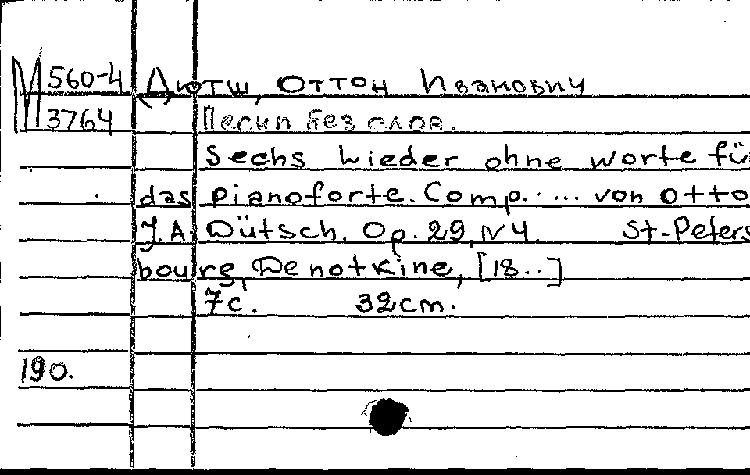 М 560-4 Дютш, Оттон Иванович
3764 Песни без слов.
Sechs Lieder ohne worte fü
das pianoforte. Comp..... von Otto
J. A. Dütsch. Op. 29, N 4. St-Peters
bourg, Denotkine, [18..]
7с. 32cm.
190.